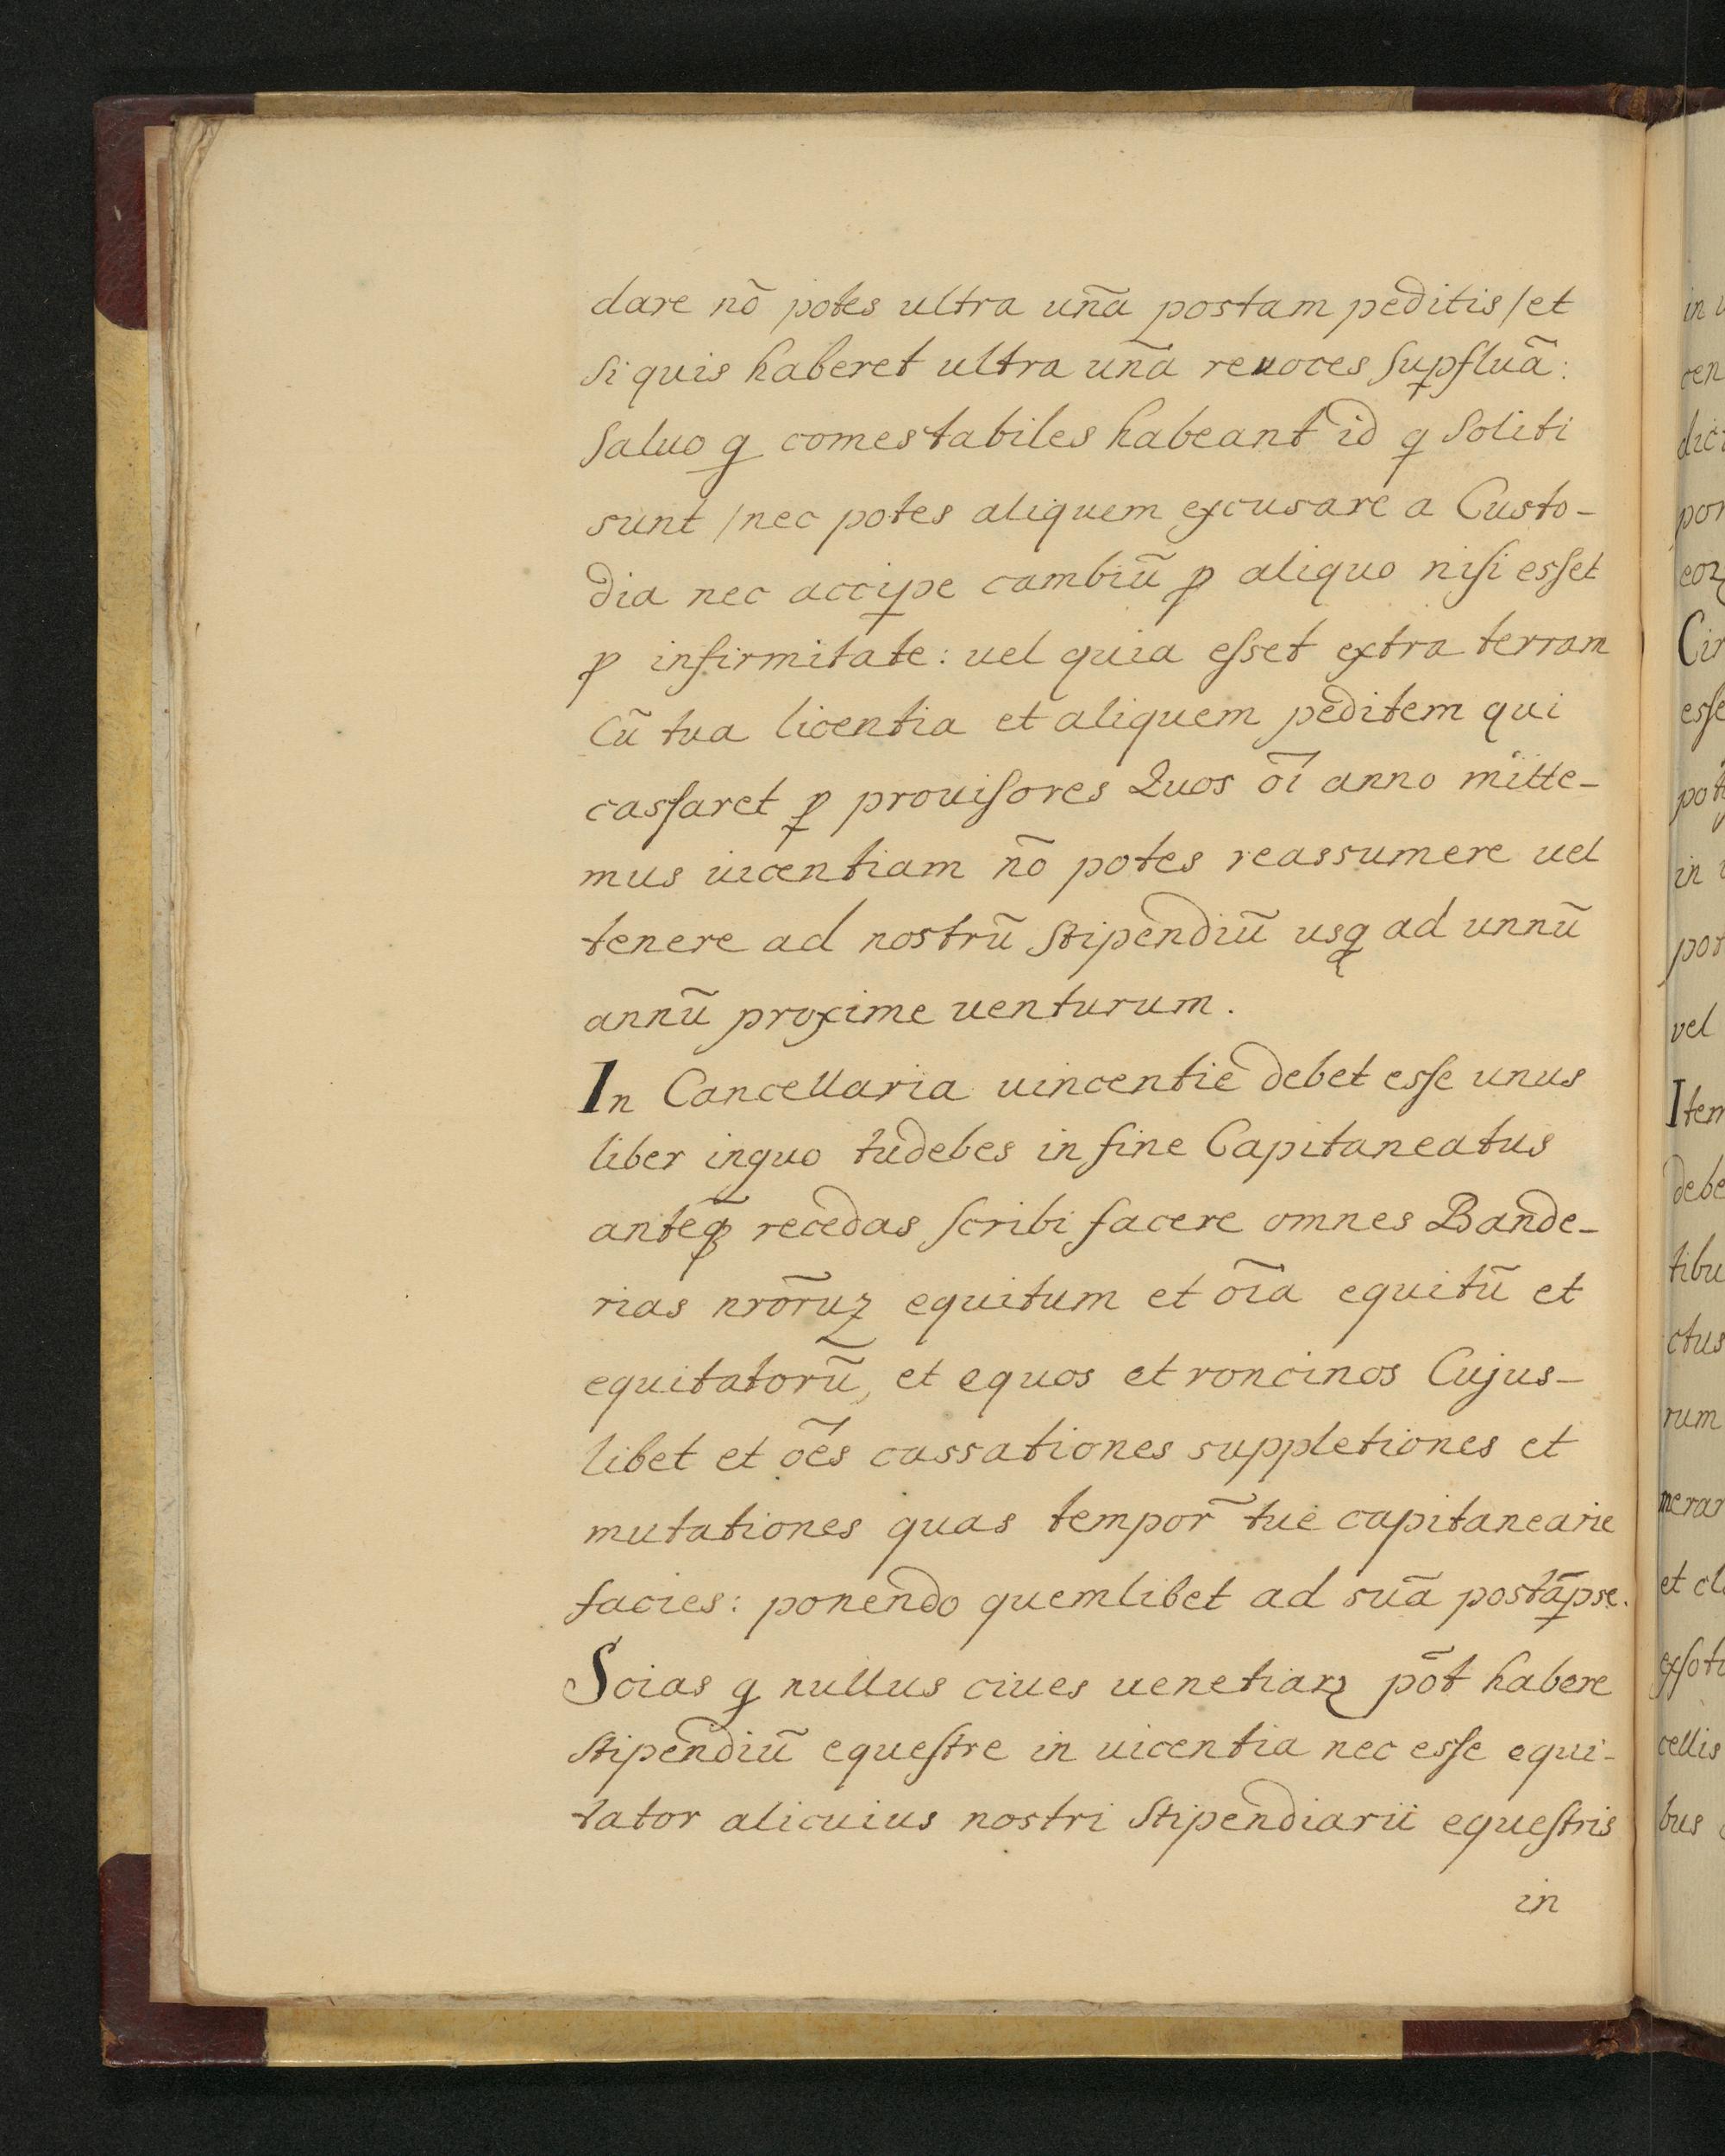 dare nō potes ultra unā postam peditis / et
si quis haberet ultra unā reuoces suꝑfluā:
saluo ꝙ comestabiles habeant id ꝙ soliti
sunt / nec potes aliquem excusare a Custo-
dia nec acciꝑe cambiū ꝓ aliquo nisi esset
ꝓ infirmitate: uel quia esset extra terram
cū tua licentia et aliquem peditem qui
cassaret ꝑ prouisores Quos oī anno mitte-
mus uicentiam nō potes reassumere uel
tenere ad nostrū stipendiū usqꝫ ad unnū
annū proxime uenturum.
In Cancellaria uincentie debet esse unus
liber inquo tudebes in fine Capitaneatus
anteꝙ̄ recedas scribi facere omnes Bande-
rias nr̄oruꝫ equitum et oīa equitū et
equitatorū, et equos et roncinos Cujus-
libet et oēs cassationes suppletiones et
mutationes quas tempor̄ tue capitanearie
facies: ponendo quemlibet ad suā postāꝑse.
Scias ꝙ nullus ciues uenetiaꝝ pōt habere
stipendiū equestre in uicentia nec esse equi-
tator alicuius nostri stipendiarii equestris
in